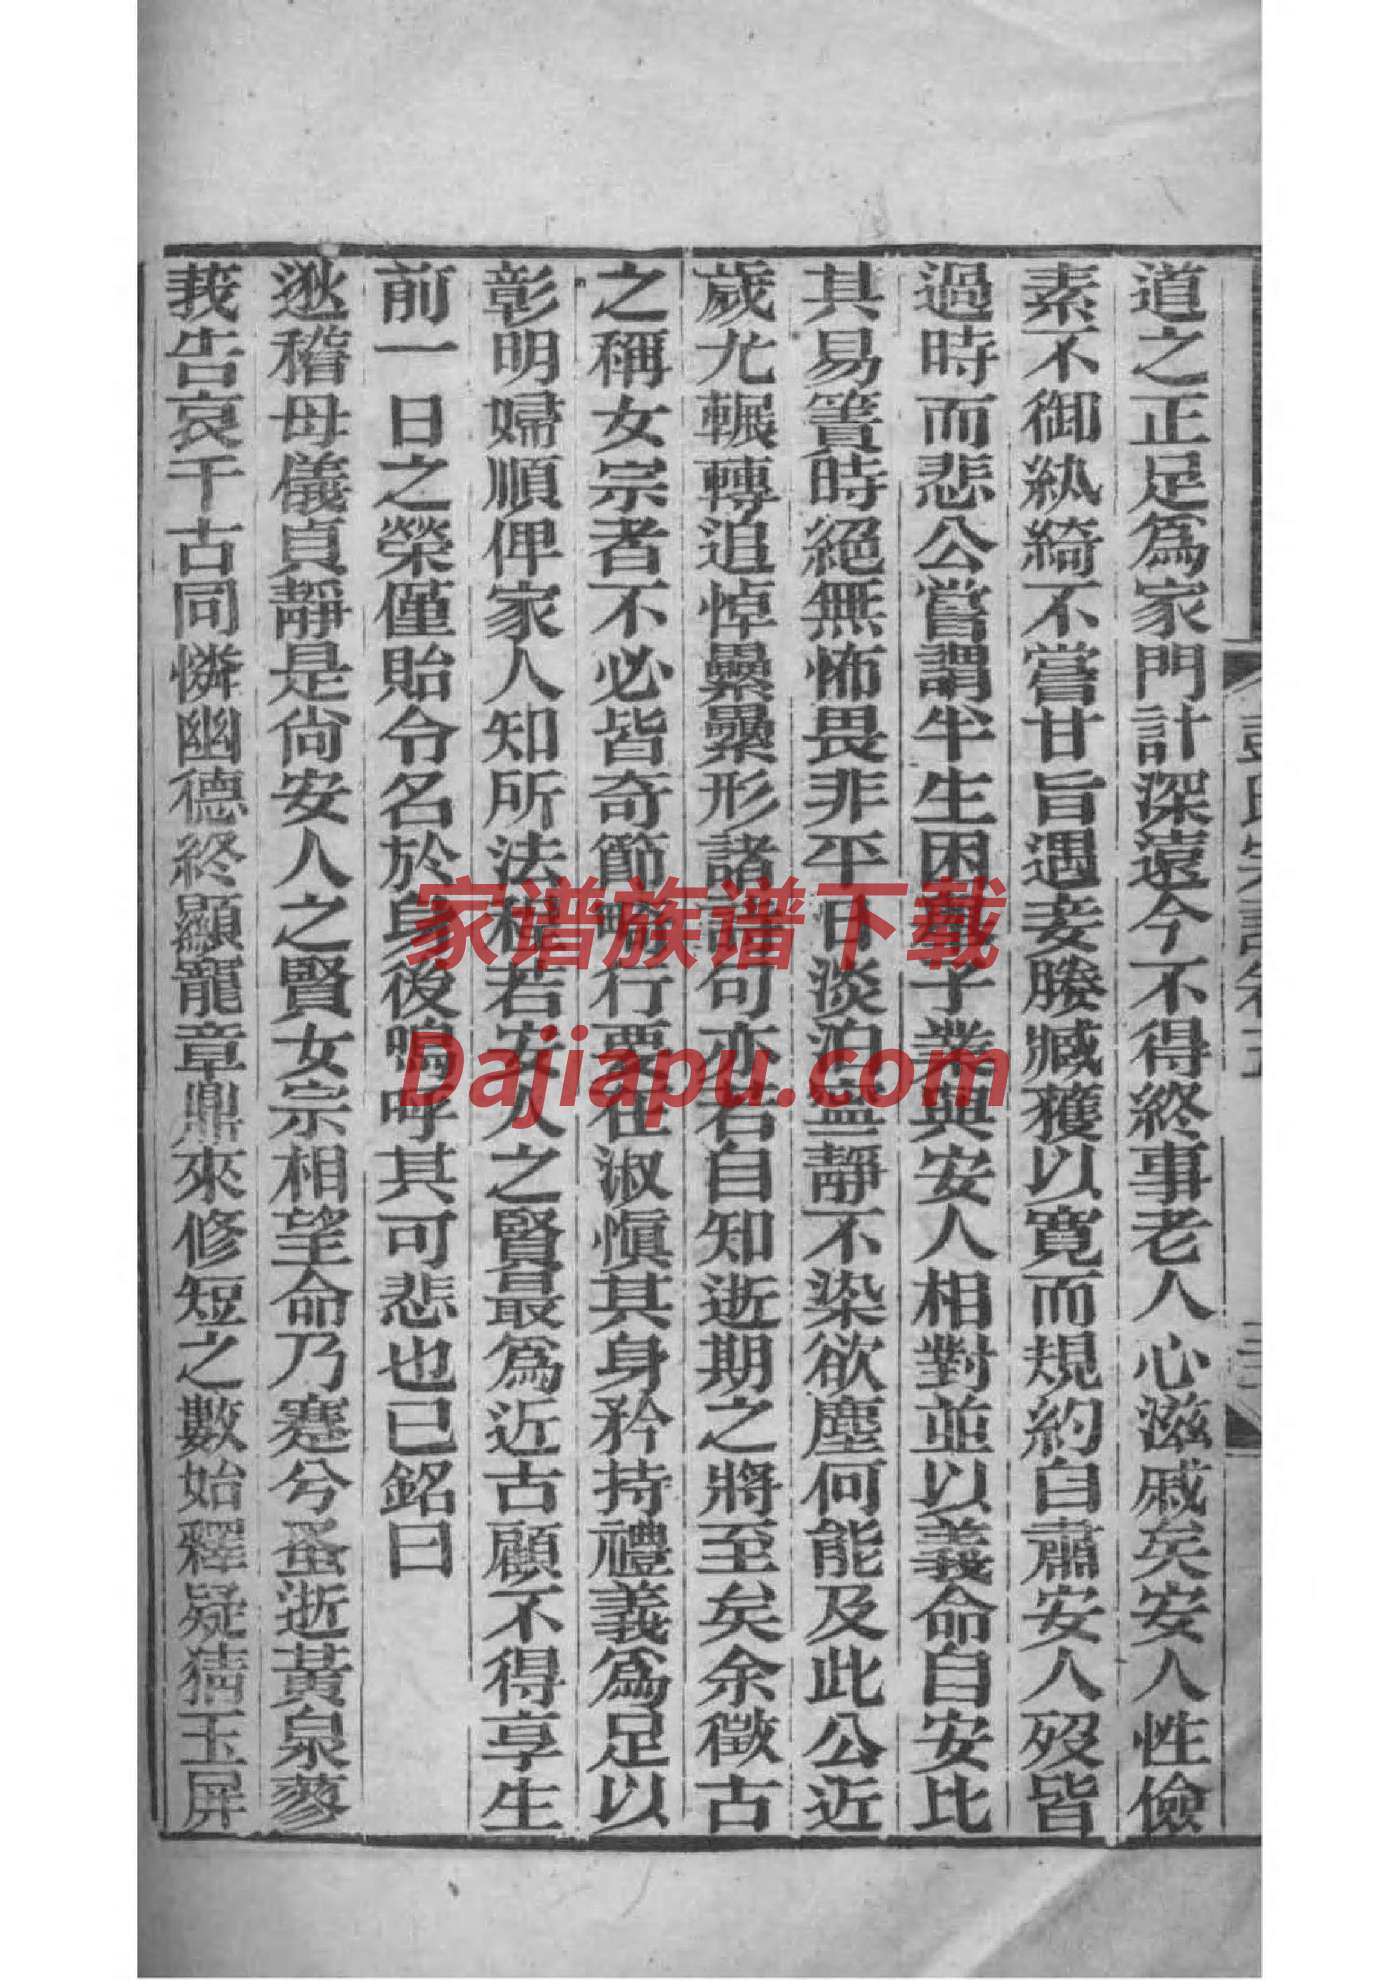 道之正足為家門計深遠今不得終事老人心滋戚矣安人性儉
素不御紈綺不嘗甘旨遇妾媵臧獲以寬而規約自肅安人歿皆
過時而悲公嘗謂半生困舉子業與安人相對並以義命自安比
其易簀時絕無怖畏非平日淡泊寧靜不染欲塵何能及此公近
歲尤輾轉追悼纍纍形諸詩句亦若自知逝期之將至矣余徵古
之稱女宗者不必皆奇節畸行要在淑慎其身矜持禮義為足以
彰明婦順俾家人知所法程若安人之賢最為近古顧不得享生
前一日之榮僅貽令名於身後嗚呼其可悲也已銘曰
逖稽母儀貞靜是尚安人之賢女宗相望命乃蹇兮蚤逝黃泉蓼
莪告哀千古同憐幽德終顯寵章鼎來修短之數始釋疑猜玉屏
家谱族谱下载
Dajiapu.com